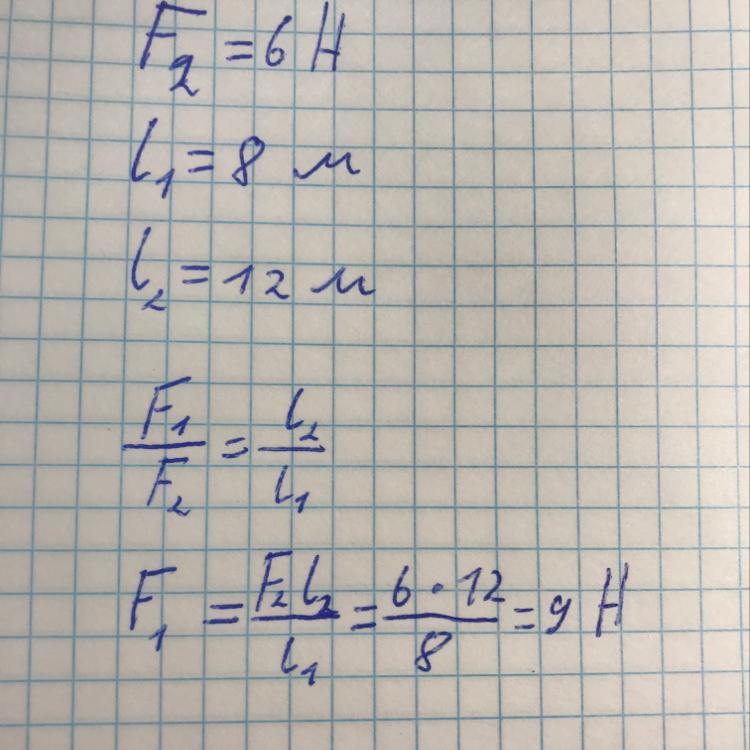 F₂ = 6 Н
l₁ = 8 м
l₂ = 12 м
F₁/F₂ = l₂/l₁
F₁ = F₂l₂/l₁ = 6·12/8 = 9 Н